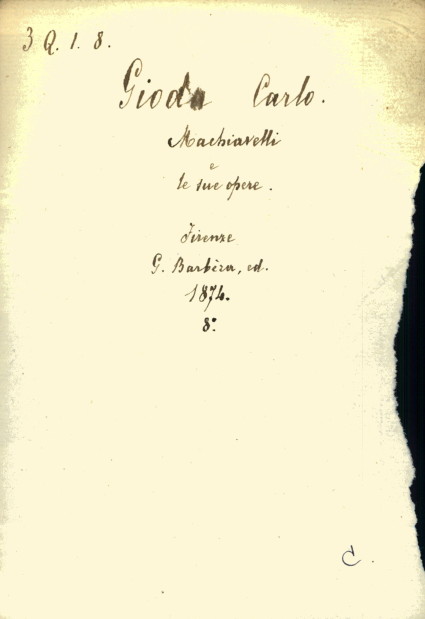 3 Q. 1. 8.
Gioda Carlo.
Machiavelli
e
le sue opere.
Firenze
G. Barbèra, ed.
1874.
8.º
C.